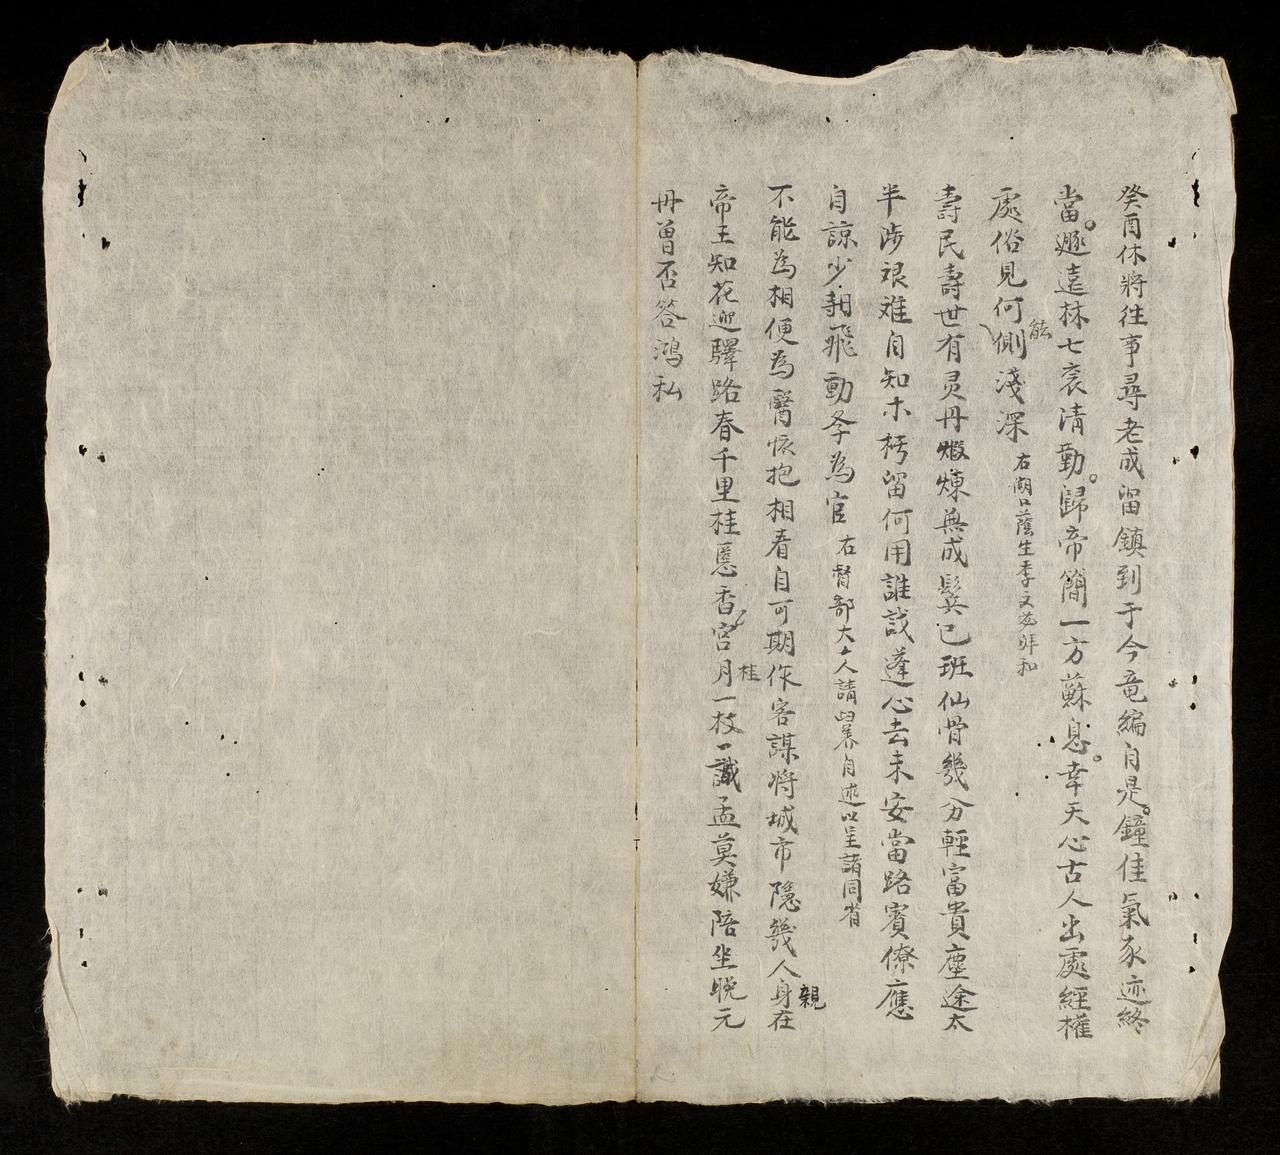 癸酉休将徃事尋老成留鎮到于今竜編自是鐘佳氣豕迹終
當遯遠林七袠清勤歸帝簡一方蘇息幸天心古人出處經權
處俗見何能側淺深 右湖口蔭生季文 拜和
壽民壽世有灵丹煅煉無成鬂已班仙骨幾分輕富貴塵途太
半涉艰难自知木枵留何用誰 蓬心去未安當路賓僚應
自諒少翶飛動冬為官 右督部大人請 養自述以呈諸同省
不能為相便為醫怀抱相看自可期作客謀将城市隱幾人身在親
帝王知花迎驛路春千里桂 香宮月桂一枝一識孟莫嫌陪坐晚元
丹曽否答鴻私